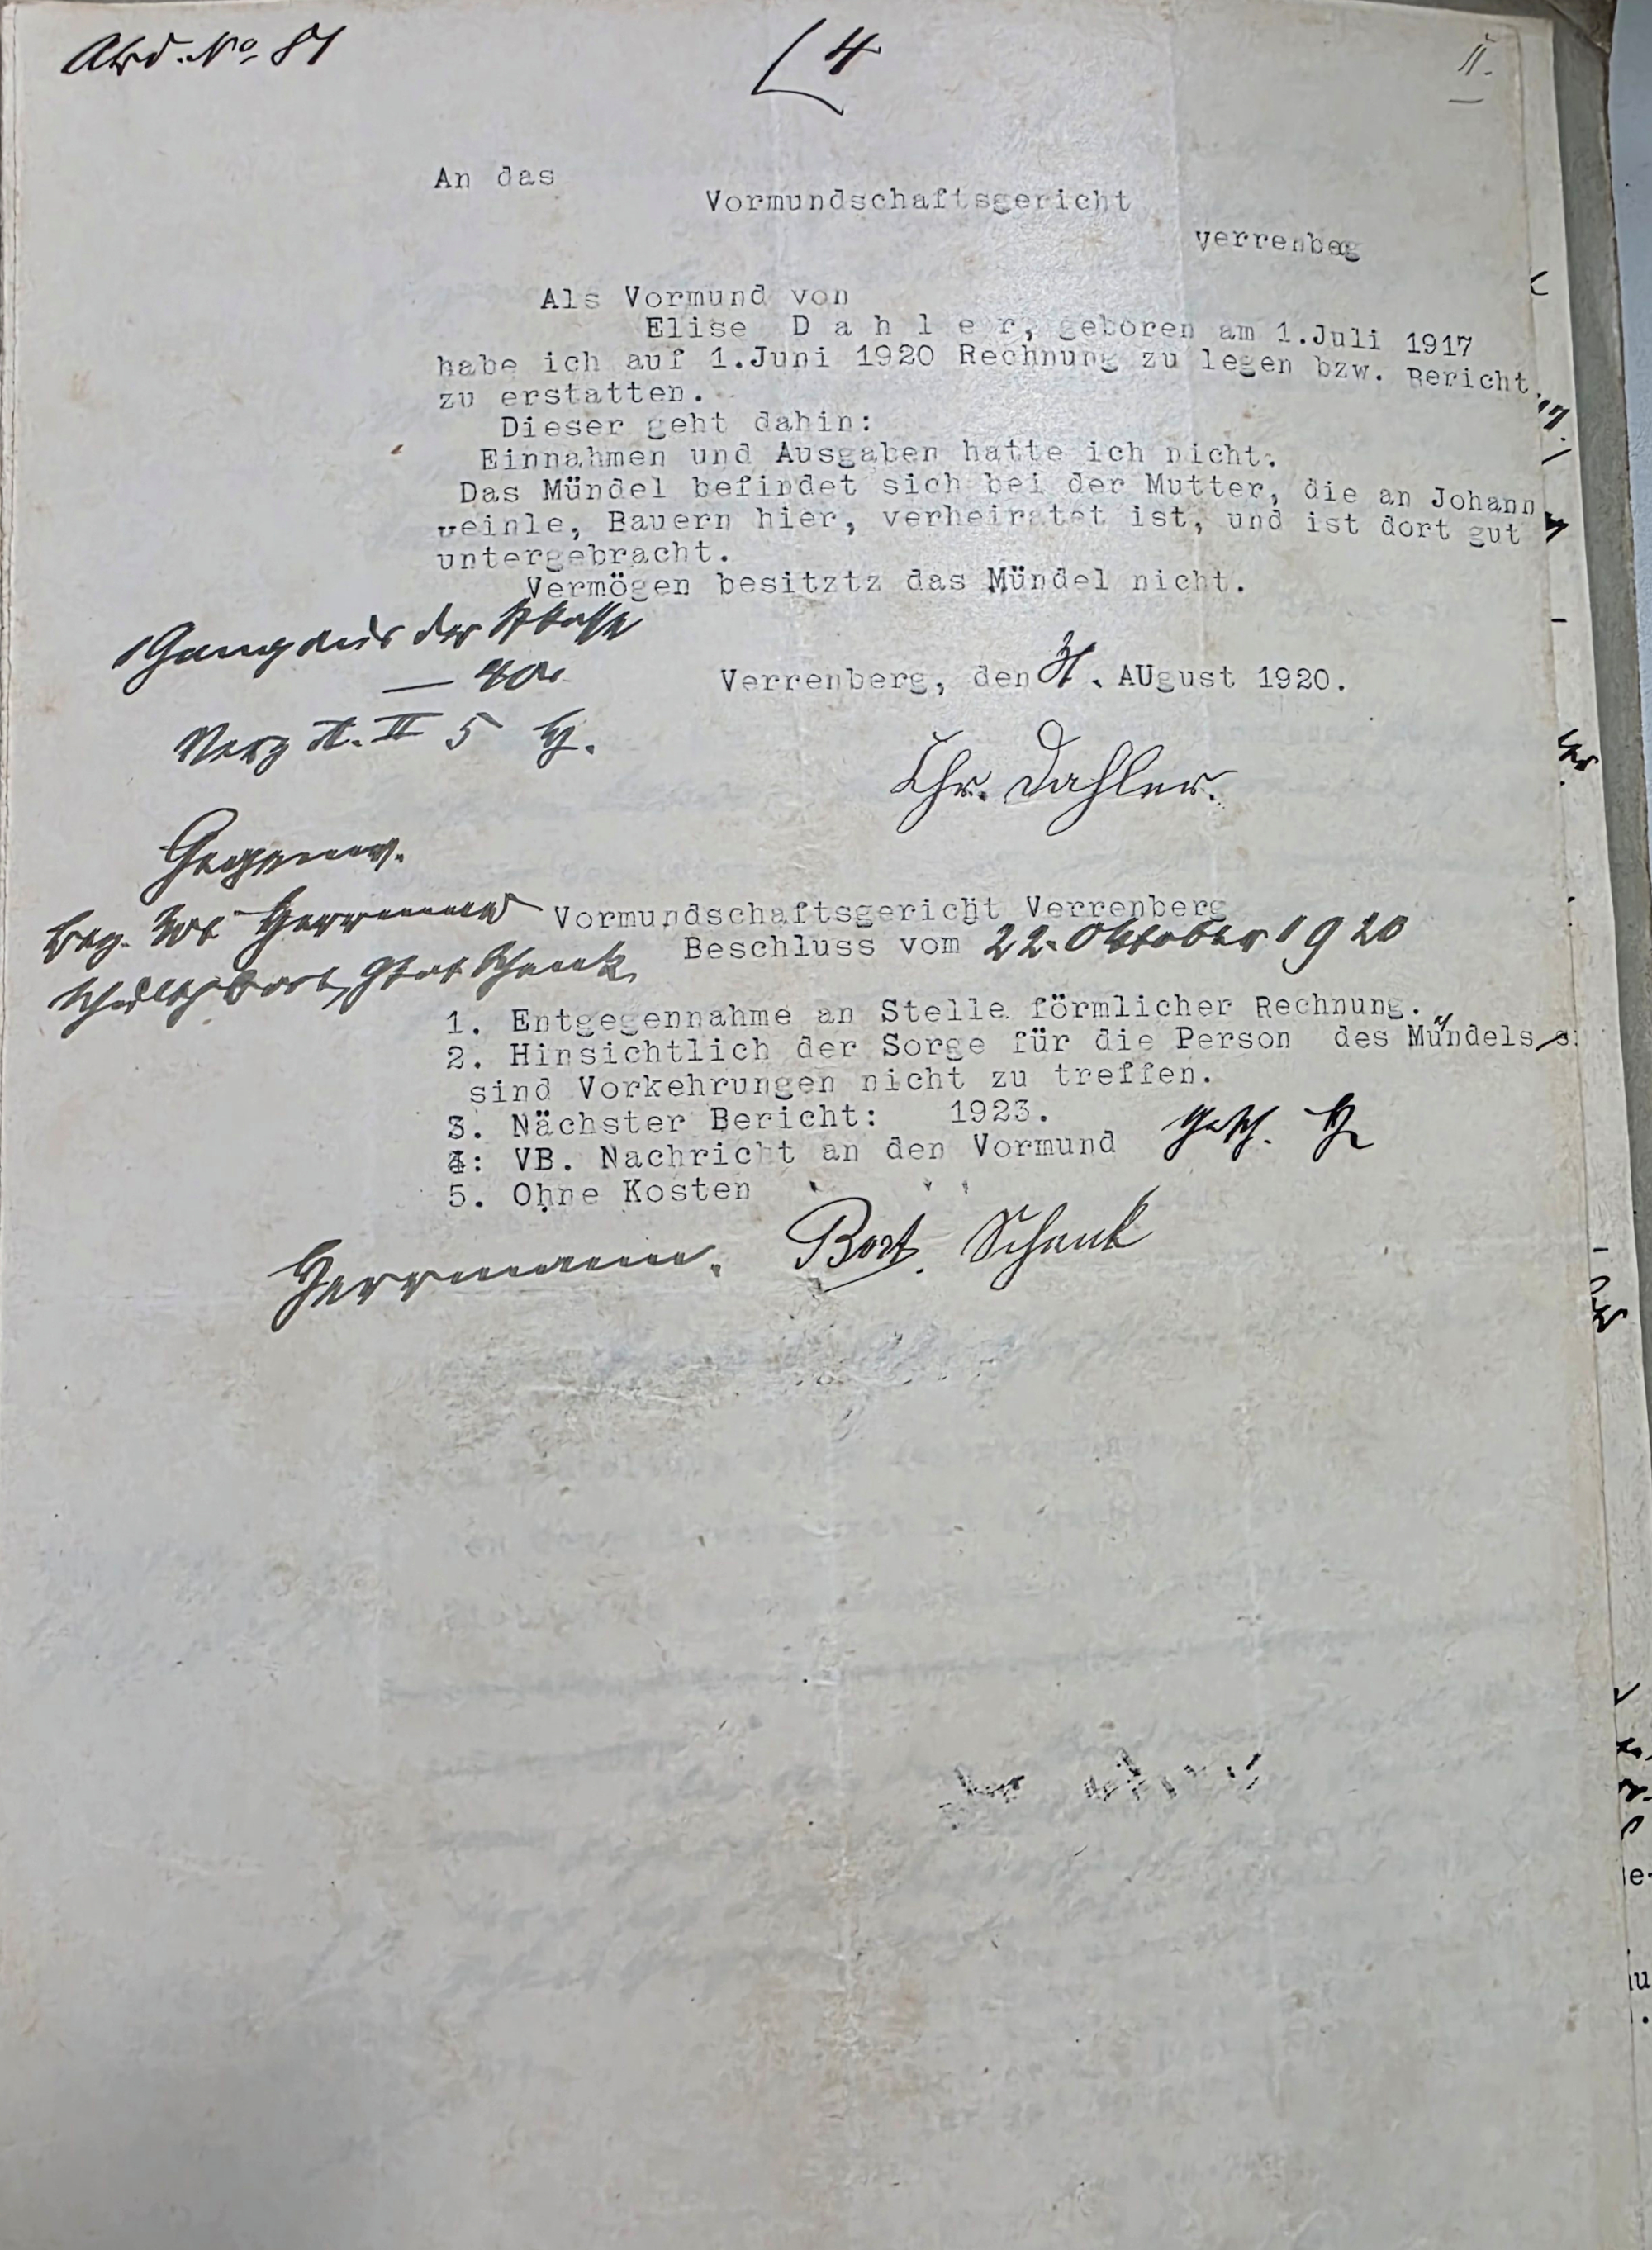 No. 81
4
II.
An das
Vormundschaftsgericht
Verrenbeg
Als Vormund von
Elise D a h l e r, geboren am 1.Juli 1917
habe ich auf 1.Juni 1920 Rechnung zu legen bzw. Bericht
zu erstatten.
Dieser geht dahin:
Einnahmen und Ausgaben hatte ich nicht.
Das Mündel befindet sich bei der Mutter, die an Johann
Weinle, Bauern hier, verheiratet ist, und ist dort gut
untergebracht.
Vermögen besitztz das Mündel nicht.
Verrenberg, den 31. AUgust 1920.
Chr. Dahler.
Gegenw.
Bez. Not Herrmann
Schulth Bort, Schenk
Vormundschaftsgericht Verrenberg
Beschluss vom 22. Oktober 1920
1. Entgegennahme an Stelle förmlicher Rechnung.
2. Hinsichtlich der Sorge für die Person des Mündels
sind Vorkehrungen nicht zu treffen.
3. Nächster Bericht: 1923.
4: VB. Nachricht an den Vormund
5. Ohne Kosten
Herrmann. Bort. Schenk